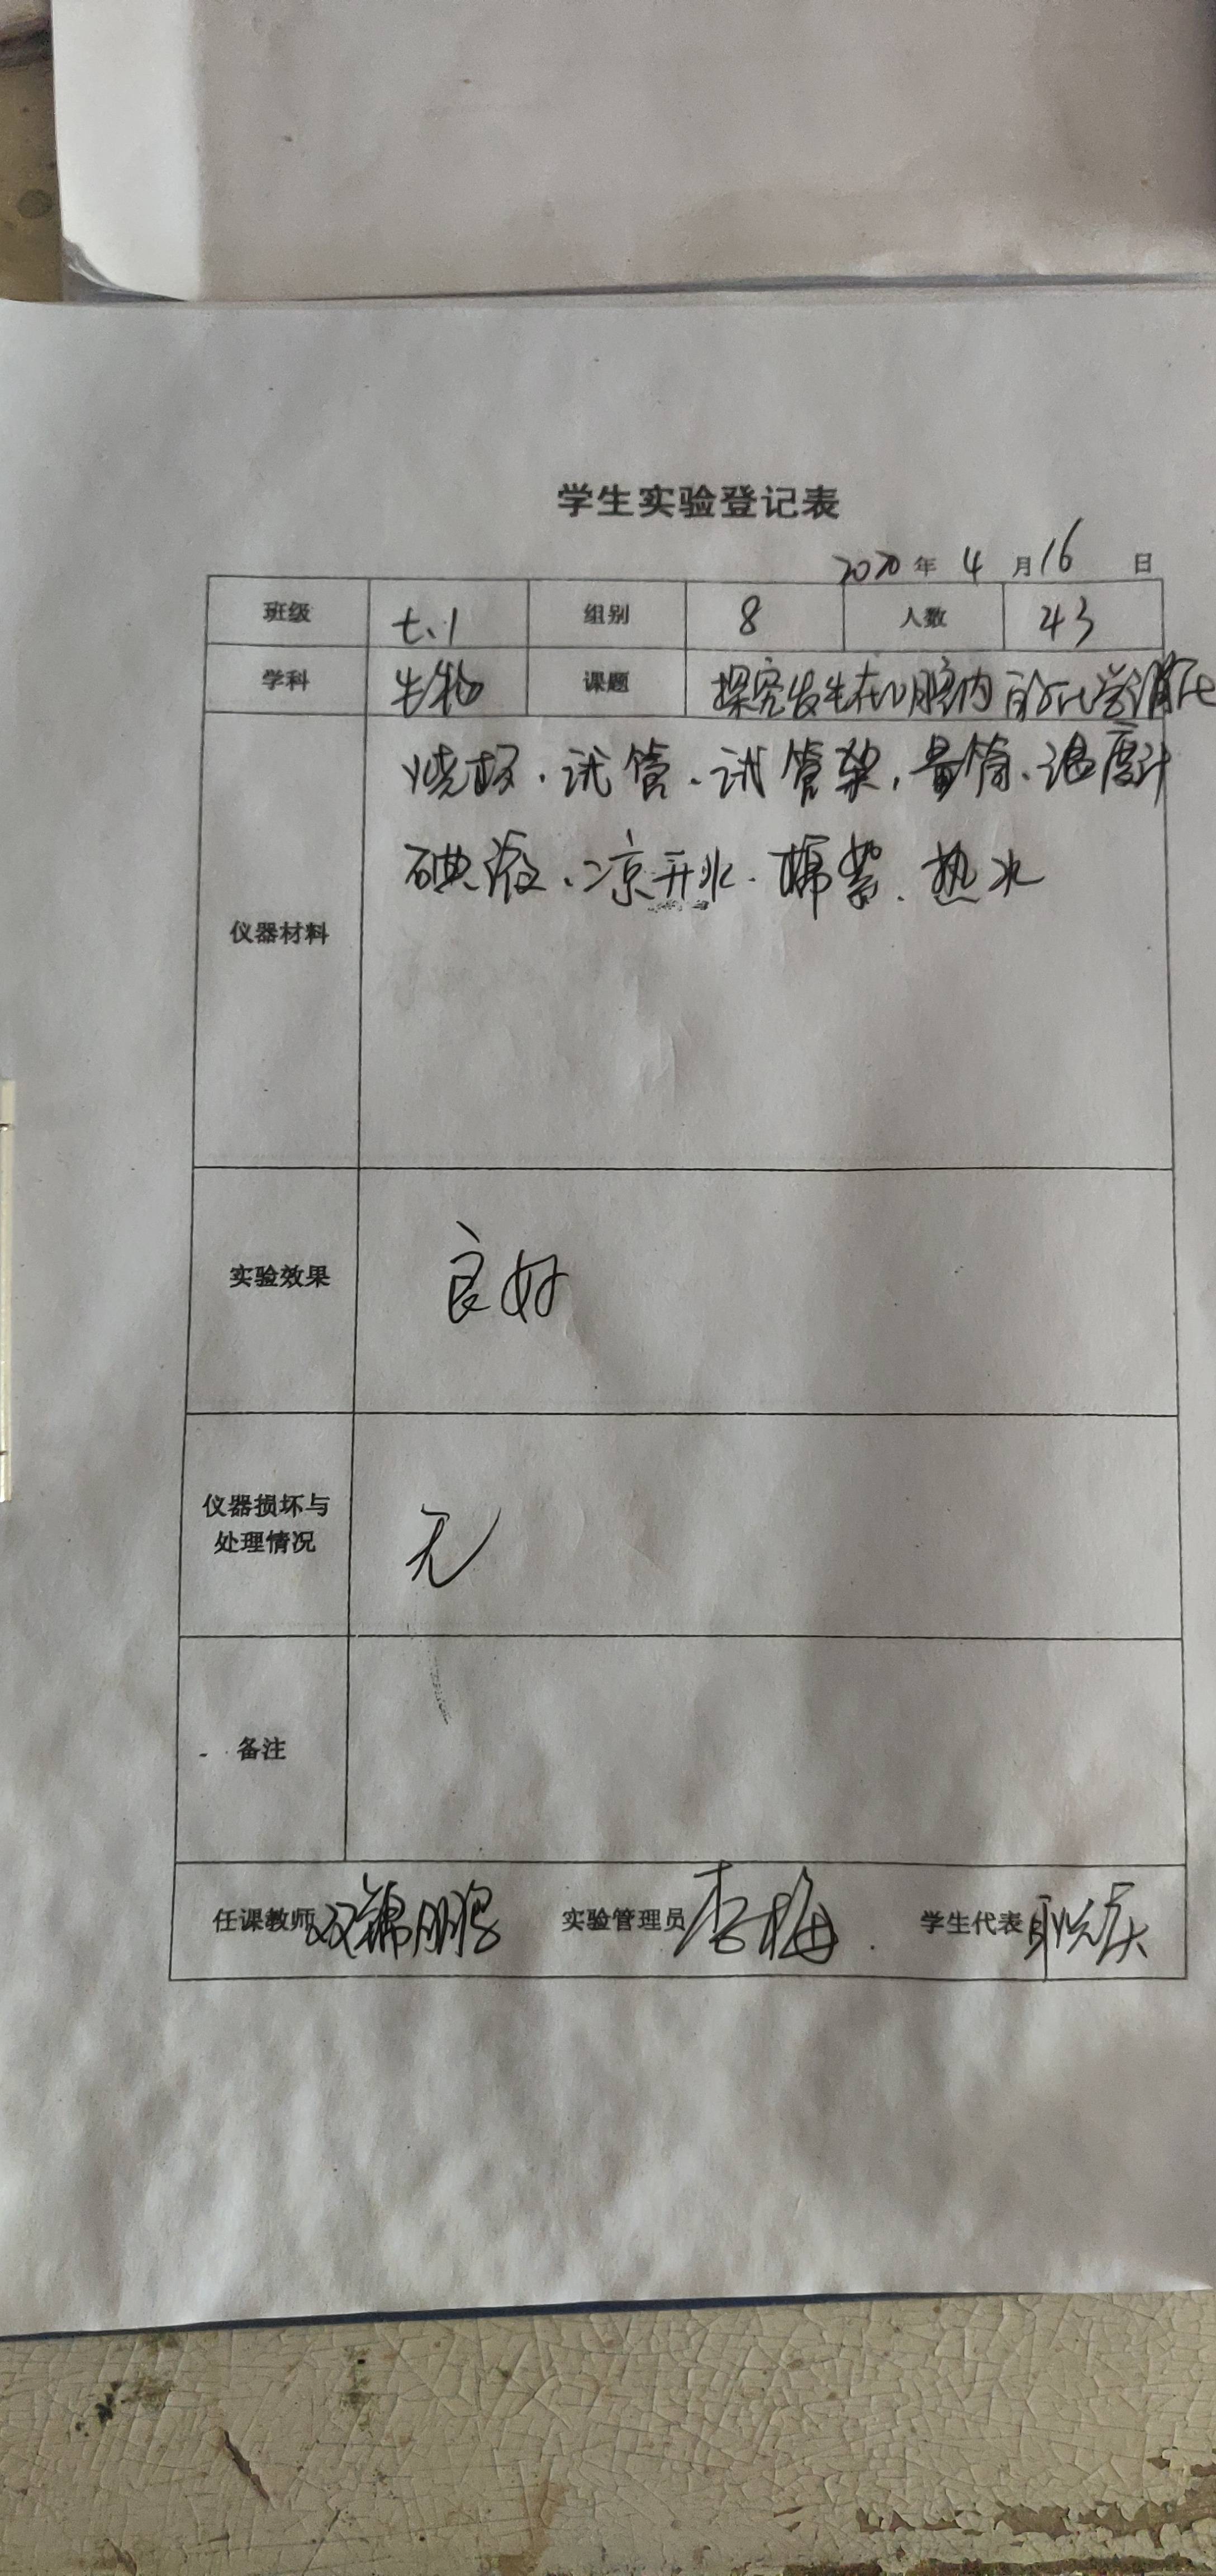 学生实验登记表
2020年4月16日
班级 七.1 组别 8 人数 43
学科 生物 课题 探究发生在口腔内的化学消化
仪器材料 烧杯、试管、试管架、量筒、温度计
碘液、凉开水、棉絮、热水
实验效果 良好
仪器损坏与
处理情况 无
备注
任课教师 双锦鹏 实验管理员 李梅 学生代表